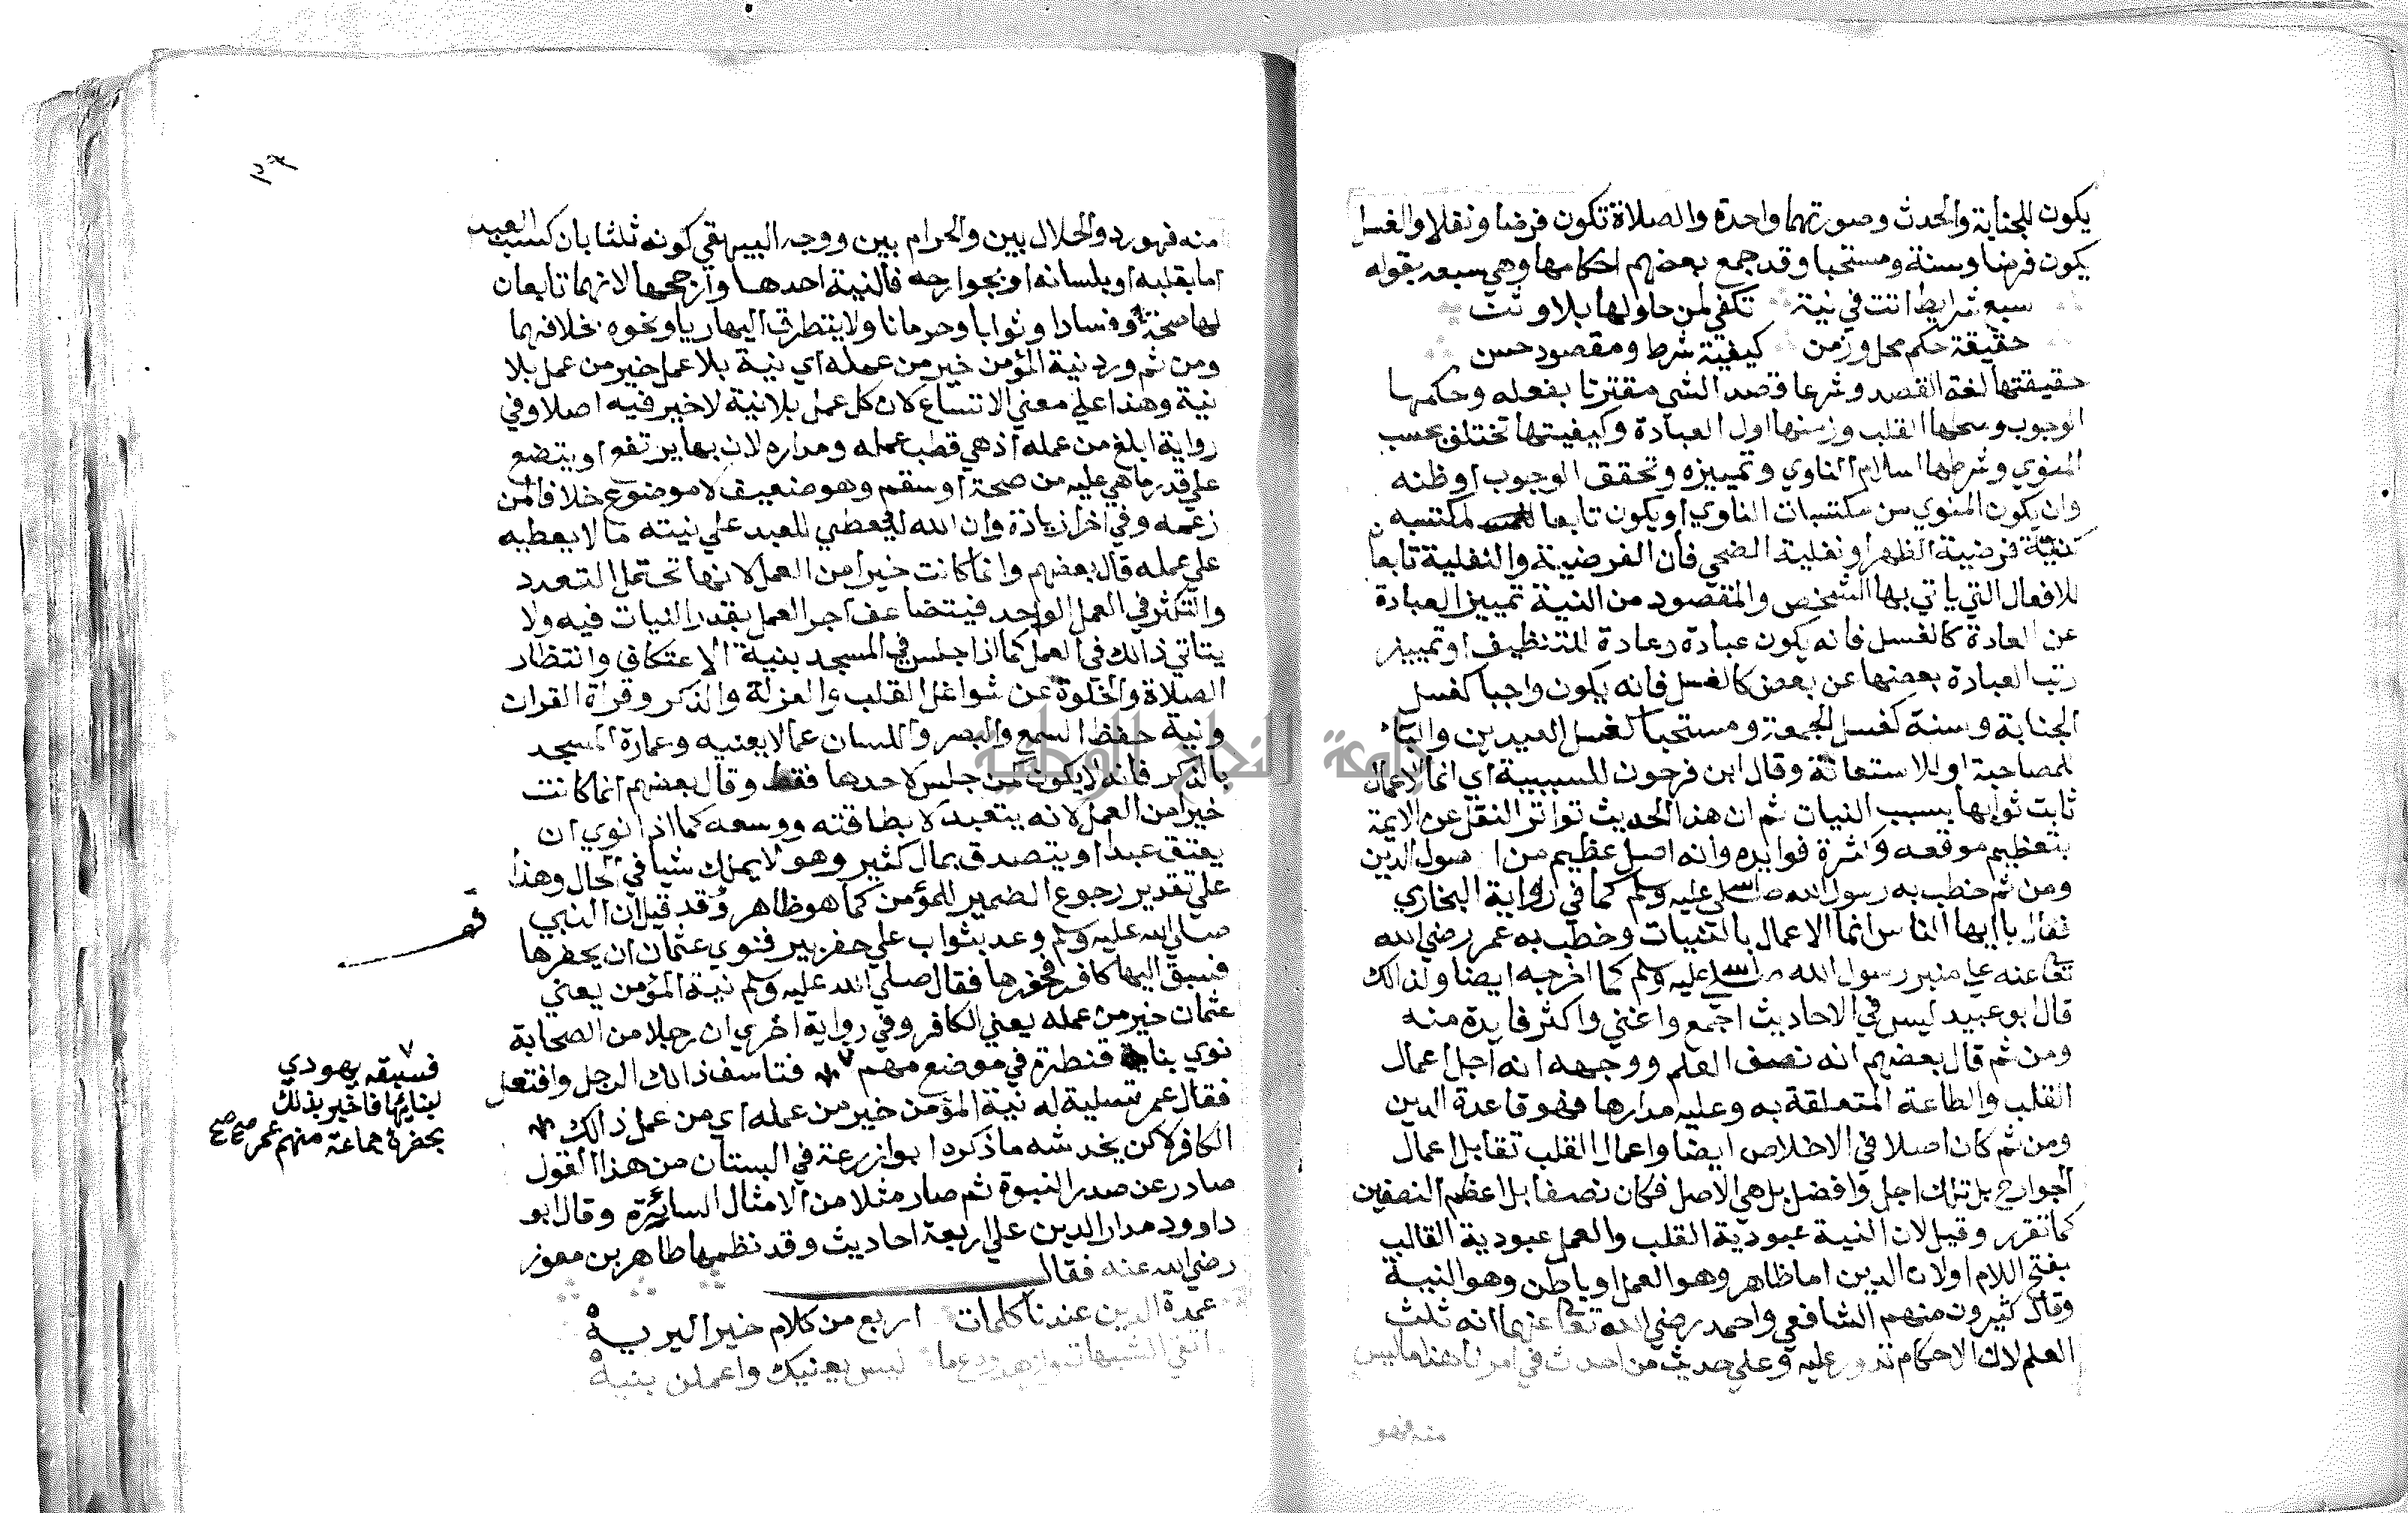 يكون للجنابة والحدث وصورتهما واحدة والصلاة تكون فرضا ونفلا والغسل
يكون فرضا وسنة ومستحبا وقد جمع بعضهم احكامها وهي سبعه بقوله
سبع شرايط اتت في نية تكفي لمن حاولها بلا وثن
حقيقة حكم محل وزمن كيفية شرط ومقصود حسن
حقيقتها لغة القصد وشرعا قصد الشي مقترنا بفعله وحكمها
الوجوب ومحلها القلب وزمنها اول العبادة وكيفيتها تختلف بحسب
المنوي وشرطها اسلام الناوي وتمييزه وتحقق الوجوب او ظنه
وان يكون المنوي من مكتسبات الناوي او يكون تابعا لمكتسبه
كنية فرضية الظهر او نفلية الضحي فان الفرضية والنفلية تابعان
للافعال التي ياتي بها الشخص والمقصود من النية تمييز العبادة
عن العادة كالغسل فانه يكون عبادة وعادة للتنظيف او تمييز
رتب العبادة بعضها عن بعض كالغسل فانه يكون واجبا كغسل
الجنابة وسنة كغسل الجمعة ومستحبا كغسل العيدين والباء
للمصاحبة او للاستعانة وقال ابن فرحون للسببية اي انما الاعمال
ثابت ثوابها بسبب النيات ثم ان هذا الحديث تواتر النقل عن الايمة
بتعظيم موقعه وكثرة فوايده وانه اصل عظيم من اصول الدين
ومن ثم خطب به رسول الله صلي الله عليه وسلم كما في رواية البخاري
فقال يا ايها الناس انما الاعمال بالنيات وخطب به عمر رضي الله
تعا عنه علي منبر رسول الله صلي الله عليه وسلم كما اخرجه ايضا ولذالك
قال ابو عبيد ليس في الاحاديث اجمع واغني واكثر فايدة منه
ومن ثم قال بعضهم انه نصف العلم ووجهه انه اجل اعمال
القلب والطاعة المتعلقة به وعليه مدارها فهو قاعدة الدين
ومن ثم كان اصلا في الاخلاص ايضا واعمال القلب تقابل اعمال
الجوارح بل تلك اجل وافضل بل هي الاصل فكان نصفا بل اعظم النصفين
كما تقرر وقيل لان النية عبودية القلب والعمل عبودية القالب
بفتح اللام او لان الدين اما ظاهر وهو العمل او باطن وهو النية
وقال كثيرون منهم الشافعي واحمد رضي الله تعا عنهما انه ثلث
العلم لان الاحكام تدور عليه وعلي حديث من احدث في امرنا هذا ما ليس
منه فهو
منه فهو رد والحلال بين والحرام بين ووجه البيهقي كونه ثلثا بان كسب العبد
اما بقلبه او بلسانه او بجوارحه فالنية احدها وارجحها لانهما تابعان
لها صحة وفسادا وثوابا وحرمانا ولا يتطرق اليها ريا ونحوه بخلافهما
ومن ثم ورد نية المؤمن خير من عمله اي نية بلا عمل خير من عمل بلا
نية وهذا علي معني الاتساع لان كل عمل بلا نية لا خير فيه اصلا وفي
رواية ابلغ من عمله اذ هي قطب عمله ومداره لان بها يرتفع او يتضع
علي قدر ما هي عليه من صحة او سقم وهو ضعيف لا موضوع خلافا لمن
زعمه وفي اخرا زيادة وان الله ليعطي للعبد علي نيته ما لا يعطيه
علي عمله قال بعضهم وانما كانت خيرا من العمل لانها تحتمل التعدد
والتكثر في العمل الواحد فيتضاعف اجر العمل بقدر النيات فيه ولا
يتاتي ذالك في العمل كما اذا جلس في المسجد بنية الاعتكاف وانتظار
الصلاة والخلوة عن شواغل القلب والعزلة والذكر وقراة القران
ونية حفظ السمع والبصر واللسان عما لا يعنيه وعمارة المسجد
بالذكر فانه لا يكون كمن جلس لاحدها فقط وقال بعضهم انما كانت
خيرا من العمل لانه يتعبد لا بطاقته ووسعه كما اذا نوي ان
يعتق عبدا او يتصدق بمال كثير وهو لا يملك شيا في الحال وهذا
علي تقدير رجوع الضمير للمؤمن كما هو ظاهر وقد قيل ان النبي
صلي الله عليه وسلم وعد بثواب علي حفر بير فنوي عثمان ان يحفرها
فسبق اليها كافر فحفرها فقال صلي الله عليه وسلم نية المؤمن يعني
عثمان خير من عمله يعني الكافر وفي رواية اخري ان رجلا من الصحابة
نوي بناية قنطرة في موضع مهم فتاسف ذالك الرجل وافتعل
فقال عمر تسلية له نية المؤمن خير من عمله اي من عمل ذالك
الكافر لاكن يخدشه ما ذكره ابوا زرعة في البستان من هذا القول
صادر عن صدر النبوة ثم صار مثلا من الامثال السائرة وقال ابو
داوود مدار الدين علي اربعة احاديث وقد نظمها طاهر بن معوز
رضي الله عنه فقال
عمدة الدين عندنا كلمات اربع من كلام خير البريه
اتقي الشبهات وازهد ودع ما ليس يعنيك واعملن بنية
قـ
فسبقه يهودي
لبنايها فاخبر بذلك
بحضرة جماعة منهم عمر صح صح
جامعة النجاح الوطنية